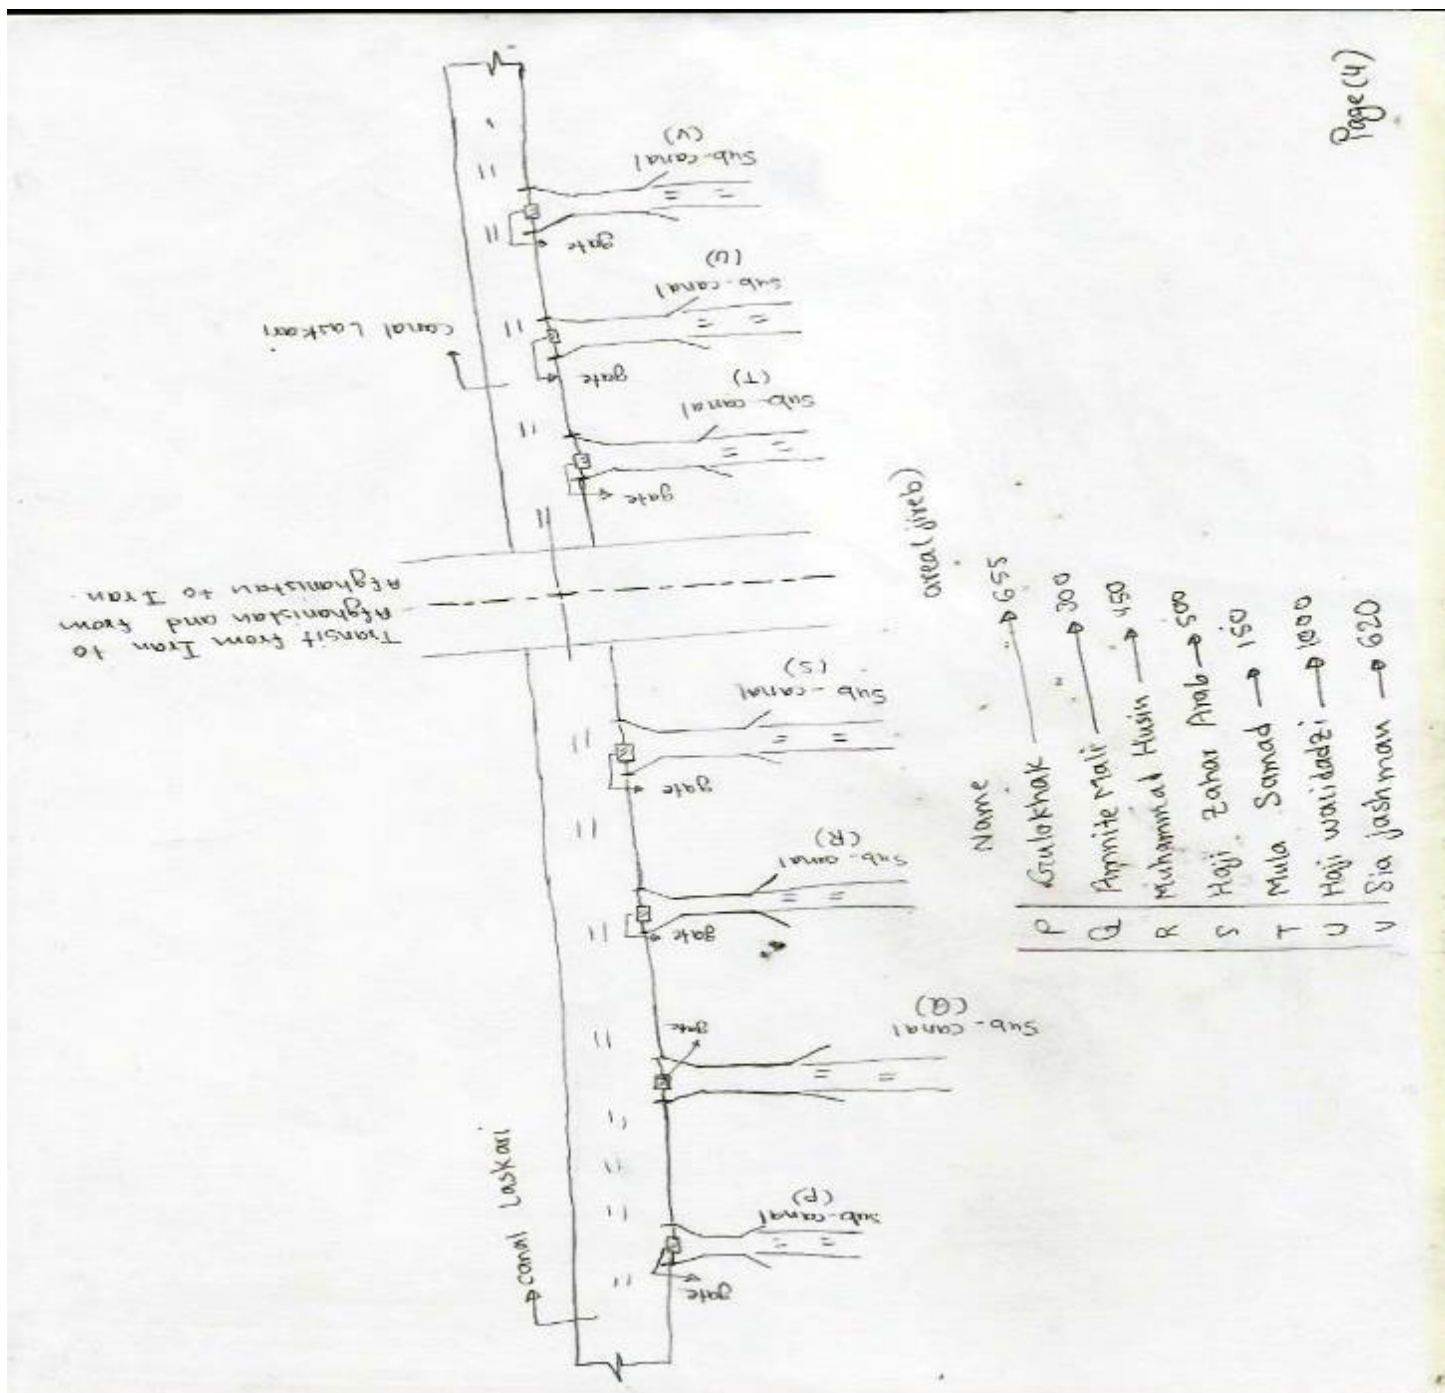 Page(4)
Sub-canal
(V)
gate
Sub-canal
(U)
gate
Canal Laskari
Sub-canal
(T)
gate
Transit from Iran to
Afghanistan and from
Afghanistan to Iran.
Sub-canal
(S)
gate
Sub-canal
(R)
gate
Sub-canal
(Q)
gate
Sub-canal
(P)
gate
canal Laskari
Name area(jireb)
P Gulokhak → 655
Q Amnite Mali → 300
R Muhammad Husin → 450
S Haji Zahar Arab → 500
T Mula Samad → 150
U Haji walidadzi → 1000
V Sia jashman → 620